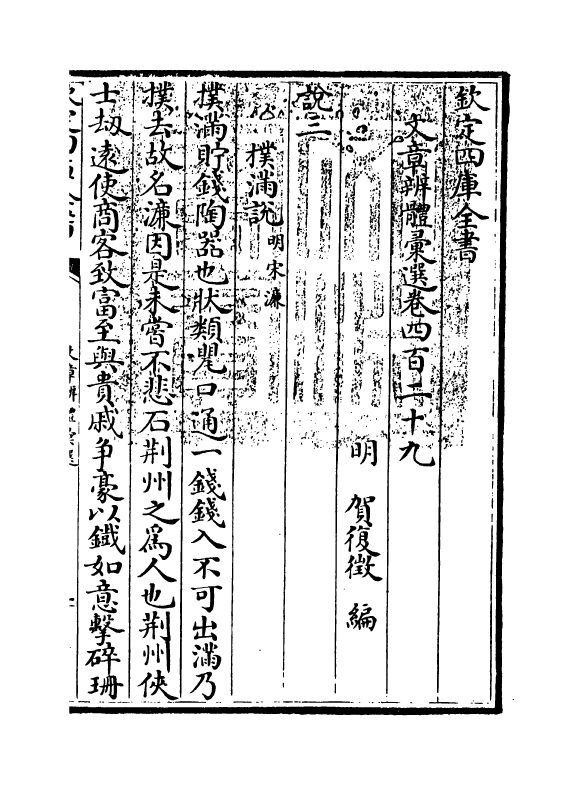 欽定四庫全書
文章辨體彙選卷四百二十九
明 賀復徵 編
說三
撲滿說明宋濂
撲滿貯錢陶器也狀類甖口通一錢錢入不可出滿乃
撲去故名濂因是未嘗不悲石荆州之爲人也荆州俠
士刼遠使商客致富至與貴戚争豪以鐡如意擊碎珊